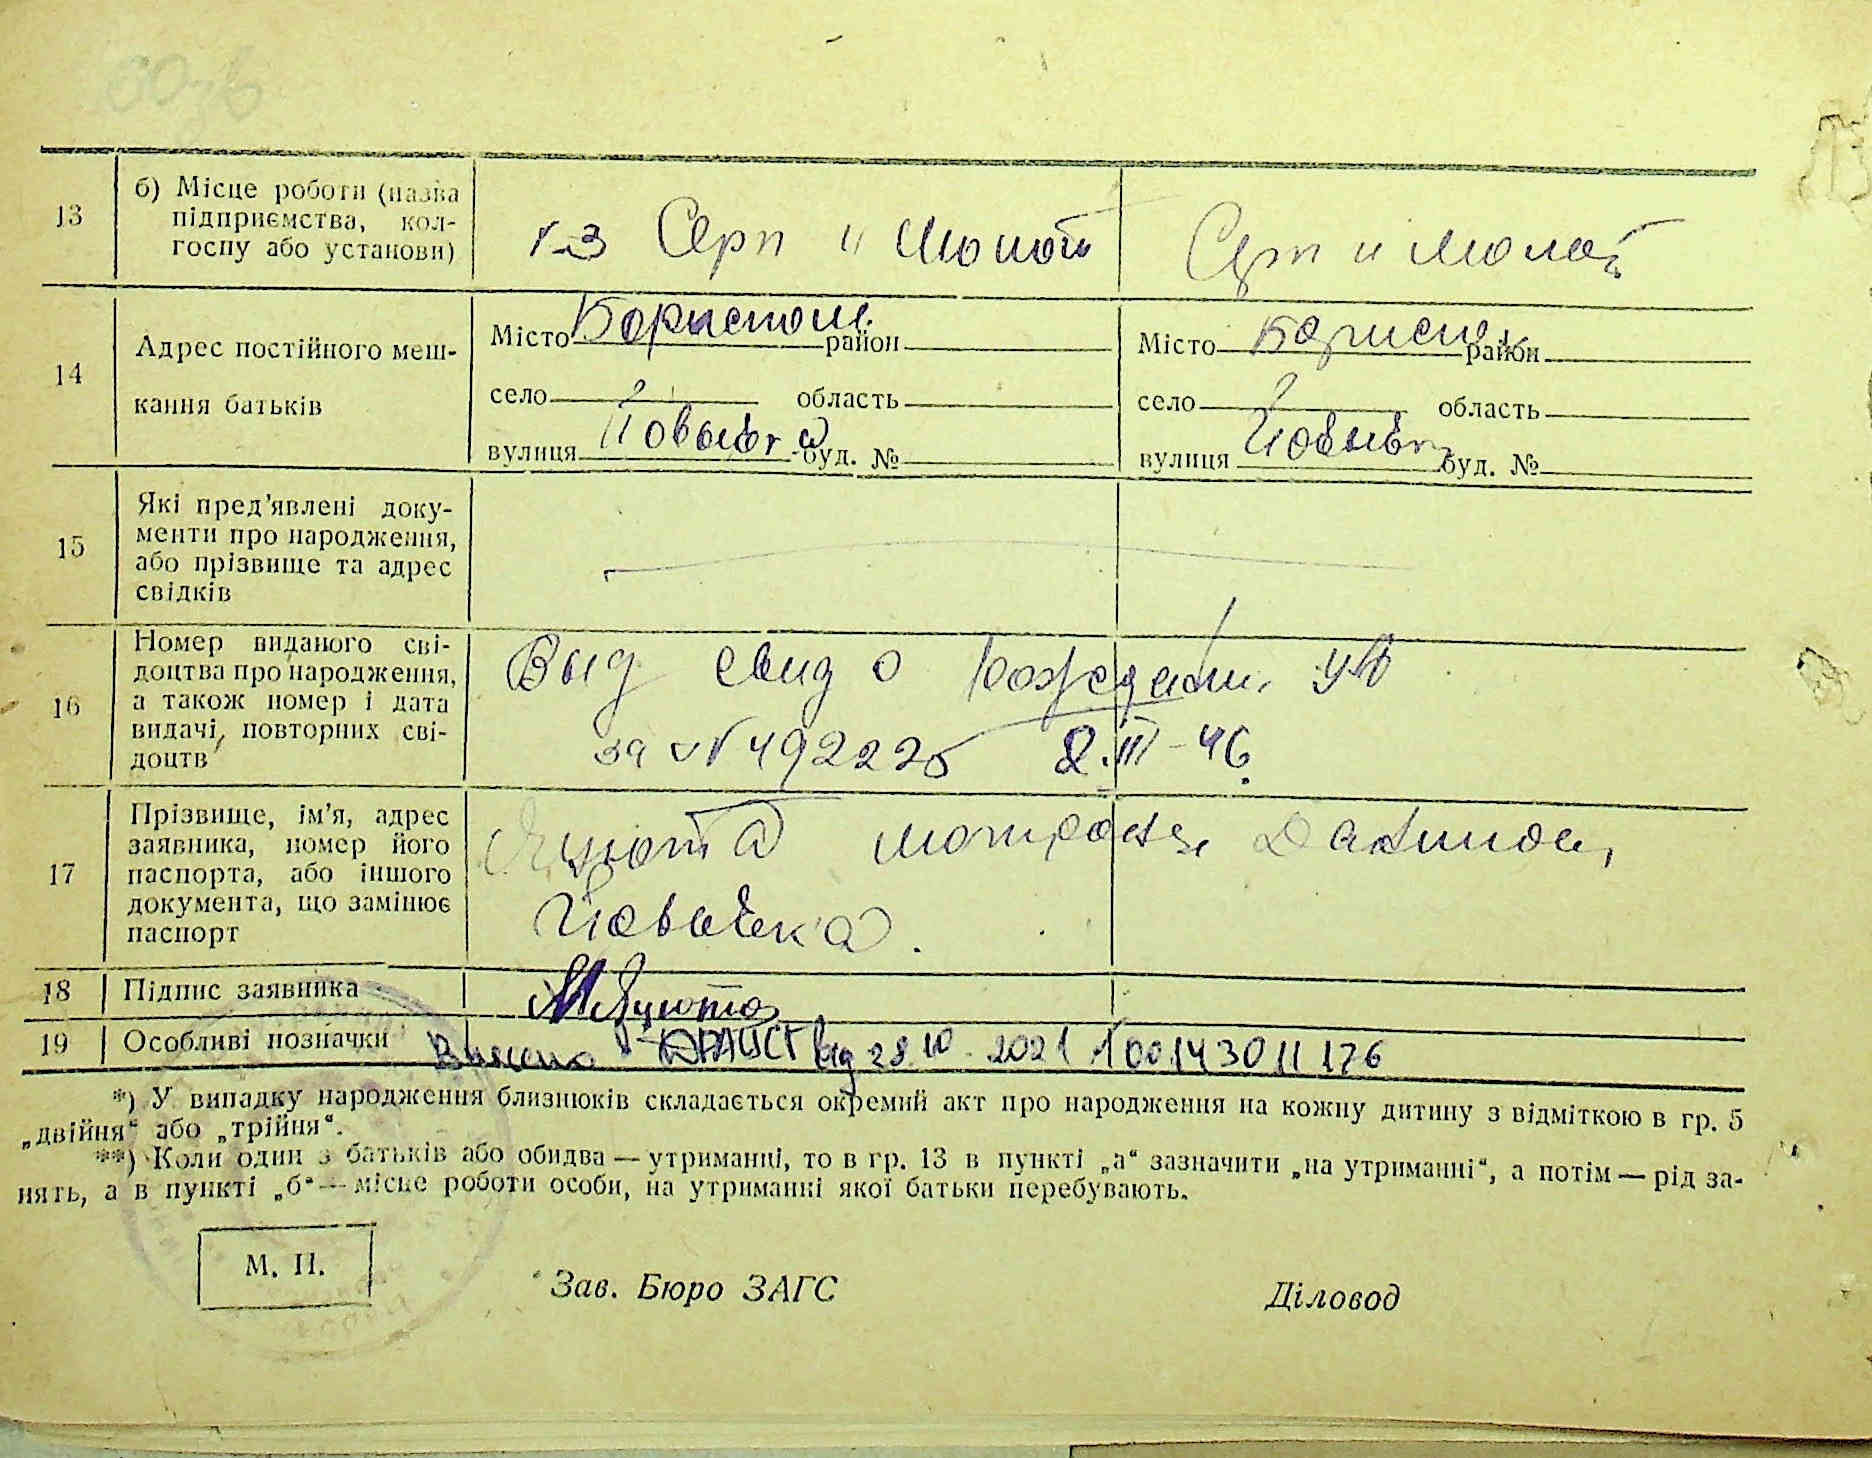 13 б) Місце роботи (назва
підприємства, кол-
госпу або установи)
Серп и Молот
Серп и Молот
14 Адрес постійного меш-
кання батьків
Місто Бориспол район
село область
вулиця буд. №
Місто район
село область
вулиця буд. №
15 Які пред'явлені доку-
менти про народження,
або прізвище та адрес
свідків
16 Номер виданого сві-
доцтва про народження,
а також номер і дата
видачі, повторних сві-
доцтв
Выд свид о рождении
за № 492225 2.III-46
17 Прізвище, ім'я, адрес
заявника, номер його
паспорта, або іншого
документа, що замінює
паспорт
18 Підпис заявника
19 Особливі позначки
ДРАЦСГ від 28.10.2021 100143011176
*) У випадку народження близнюків складається окремий акт про народження на кожну дитину з відміткою в гр. 5
„двійня“ або „трійня“.
**) Коли один з батьків або обидва — утриманці, то в гр. 13 в пункті „а“ зазначити „на утриманні“, а потім — рід за-
нять, а в пункті „б“ — місце роботи особи, на утриманні якої батьки перебувають.
М. П.
Зав. Бюро ЗАГС
Діловод